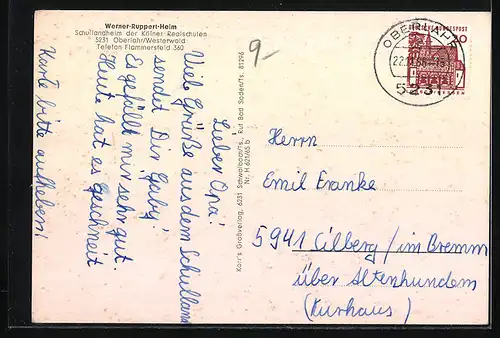 Werner-Ruppert-Heim
Schullandheim der Kölner Realschulen
5231 Oberlahr/Westerwald
Telefon Flammersfeld 360
9-
Lieber Opa!
Viele Grüße aus dem Schullandheim
sendet Dir Gaby!
Es gefällt mir sehr gut.
Heute hat es geschneit
Karte bitte aufheben!
Korr's Großverlag, 6231 Schwalbach/Ts., Ruf Bad Soden/Ts. 81296
Nr. H 621/65 b
OBERLAHR
523
DEUTSCHE BUNDESPOST
Herrn
Emil Franke
5941 Oilberg/im Bremm
über Altenhundem
(Kurhaus)